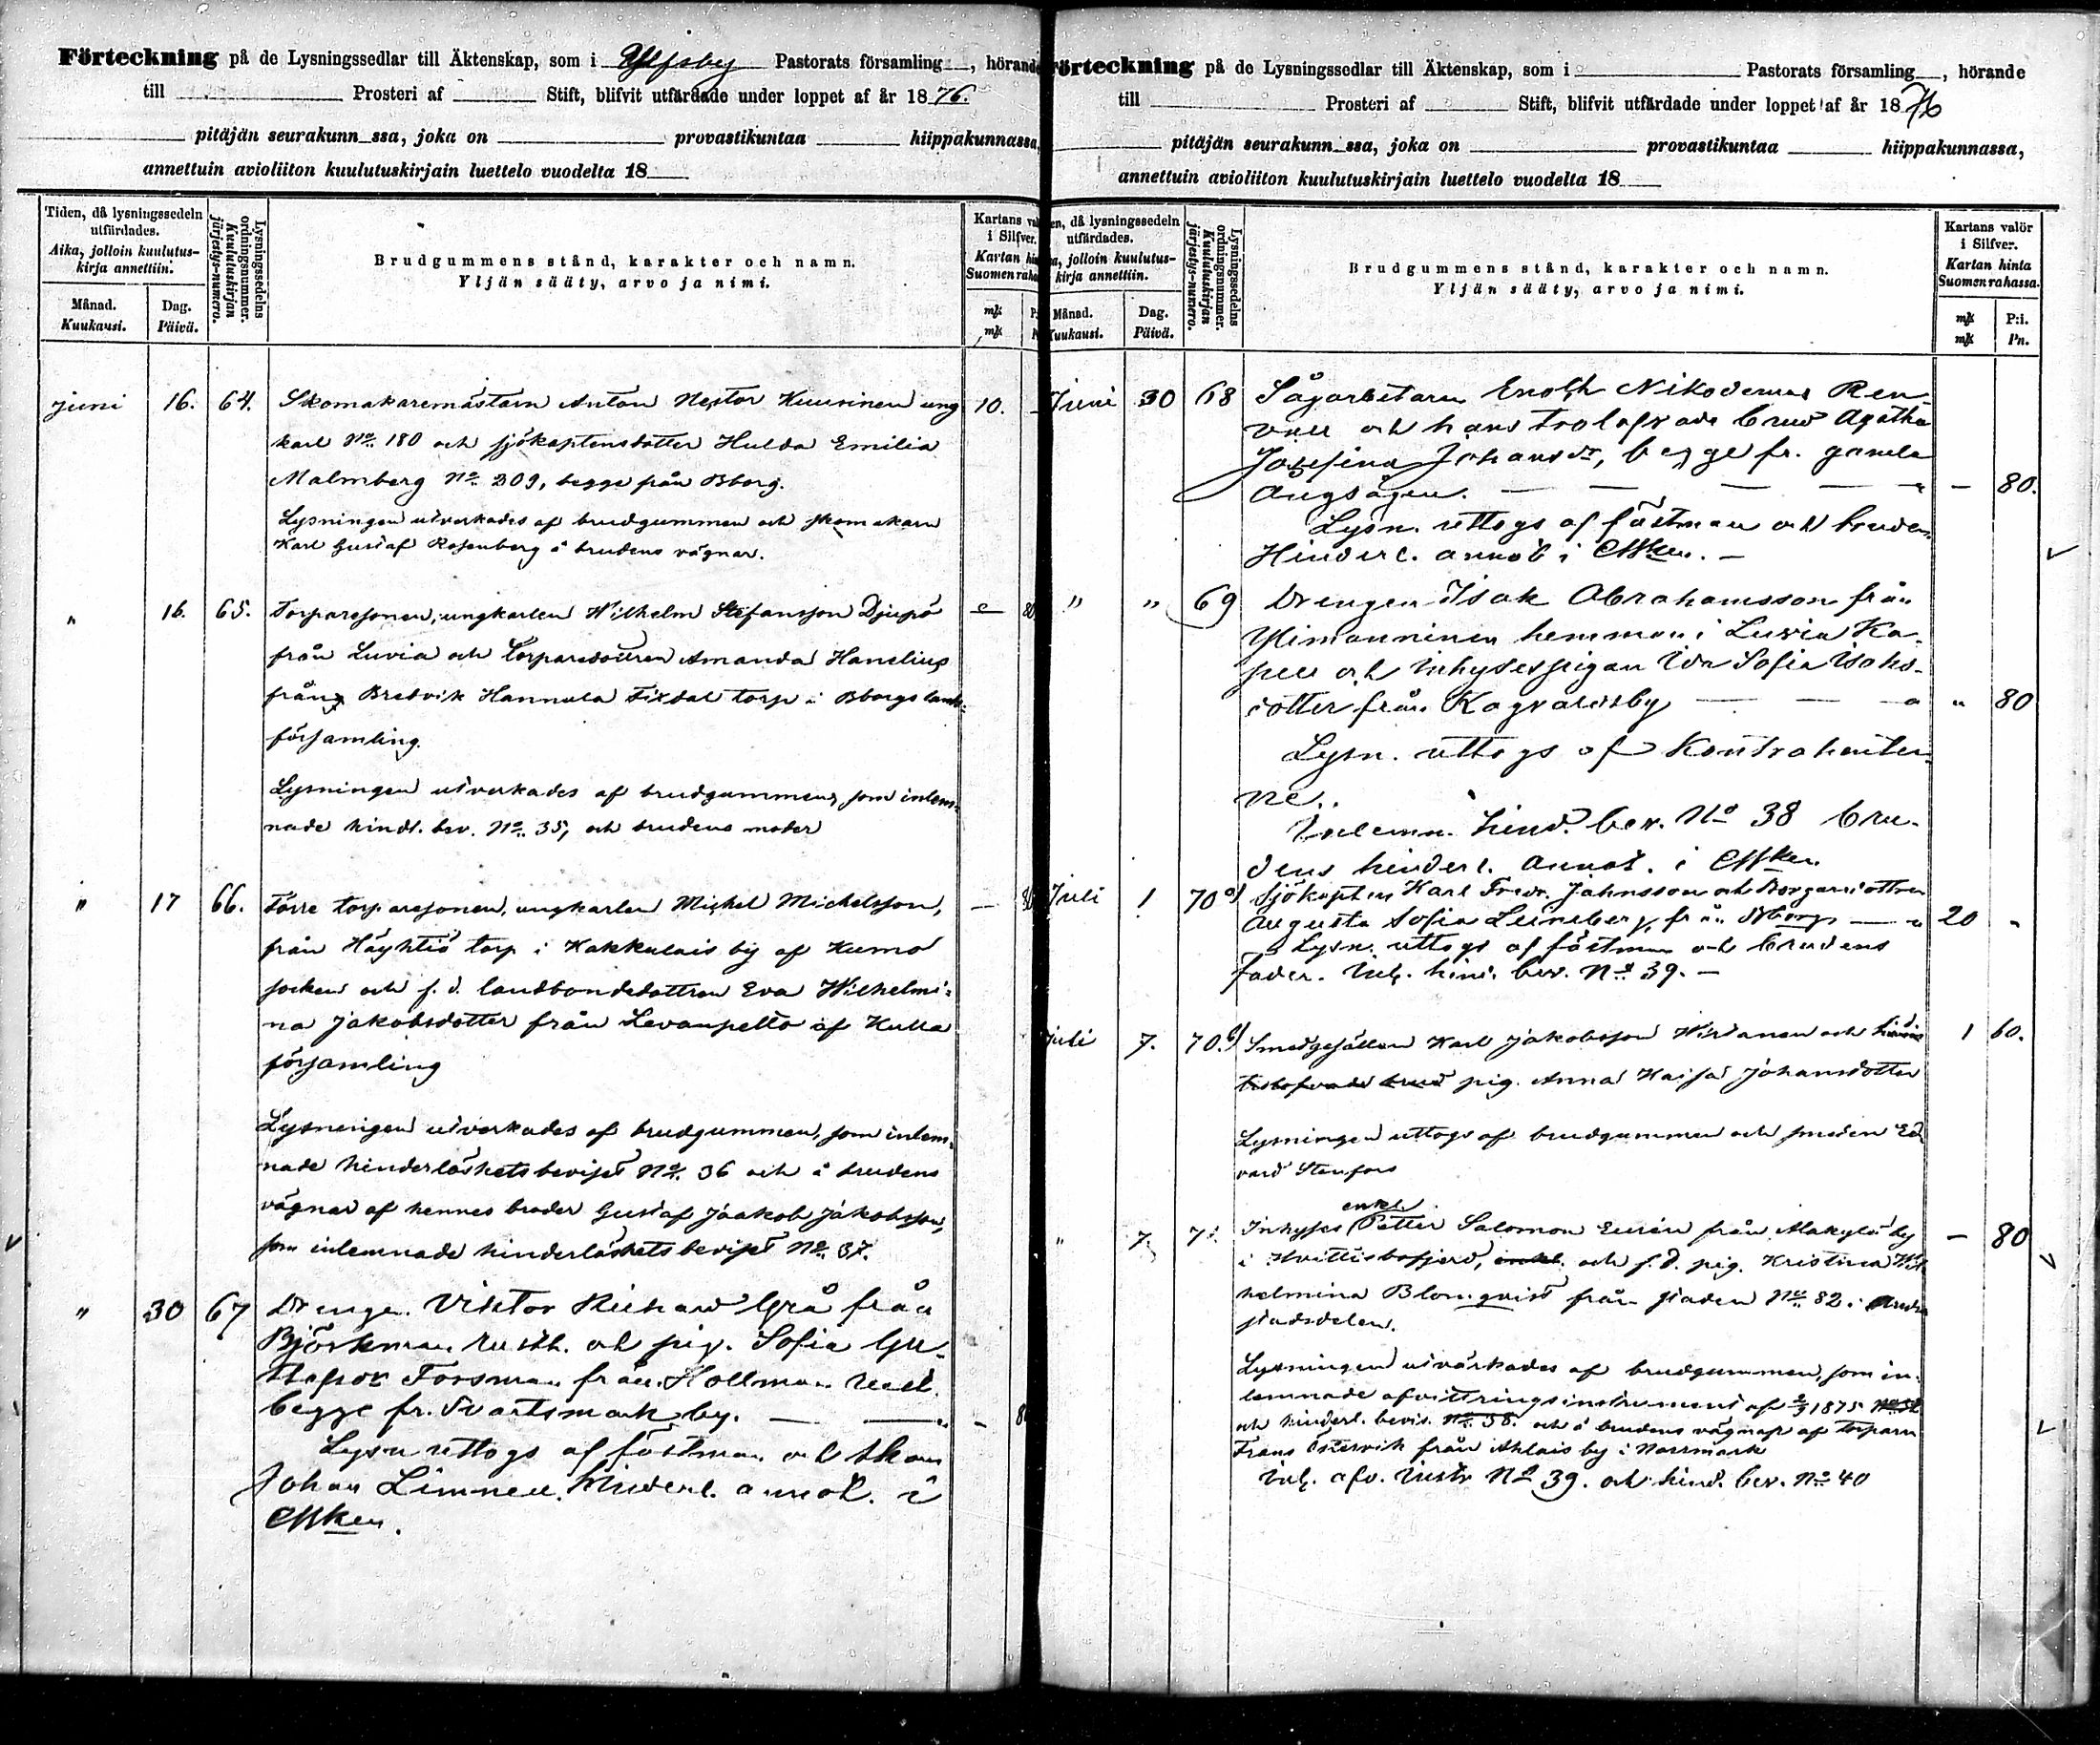 Förteckning på de Lysningssedlar till Äktenskap, som i Ulfsby Pastorats församling, hörande
till Prosteri af Stift, blifvit utfärdade under loppet af år 1876.
pitäjän seurakunn ssa, joka on provastikuntaa hiippakunnassa,
annettuin avioliiton kuulutuskirjain luettelo vuodelta 18
Tiden, då lysningssedeln utfärdades.
Aika, jolloin kuulutuskirja annettiin.
Månad. Kuukausi.
Dag. Päivä.
Lysningssedelns ordningsnummer.
Kuulutuskirjan järjestys-numero.
Brudgummens stånd, karakter och namn.
Yljän sääty, arvo ja nimi.
Kartans
i Silfver.
Kartan
Suomen
mk
mk
juni 16. 64. Skomakaremästarn Anton Nestor Kuusinen ung 10.
karl No. 180 och sjökaptensdotter Hulda Emilia
Malmberg No. 209, begge från Bborg.
Lysningen utverkades af brudgummen och skomakarn
Karl Gustaf Rosenberg å brudens vägnar.
" 16. 65. Torparesonen, ungkarlen Wilhelm Stefansson Djupö
från Luvia och torparedottren Amanda Hanelius
från Bredvik Hannula Fixdal torp i Bborgs lands-
församling.
Lysningen utverkades af brudgummen, som inlem-
nade hindl. bev. No. 35, och brudens moder
" 17 66. Förre torparesonen, ungkarlen Michel Michelsson, —
från Häyhtiö torp i Kakkulais by af Kumo
socken och f. d. landbondedottren Eva Wilhelmi-
na Jakobsdotter från Levanpelto af Kulla
församling
Lysningen utverkades af brudgummen, som inlem-
nade hinderlöshetsbeviset No. 36 och å brudens
vägnar af hennes broder Gustaf Jaakob Jakobsson,
som inlemnade hinderlöshetsbeviset No. 37.
" 30 67 Drenge. Viktor Richard Grå från
Björkman rusth. och pig. Sofia Gu-
stafsdr Forsman från Hollman
begge fr. Svartsmark by. —
Lysn uttogs af fästman och
Johan Limnell. Hinderl. annot. i
Förteckning på de Lysningssedlar till Äktenskap, som i Pastorats församling, hörande
till Prosteri af Stift, blifvit utfärdade under loppet af år 1876
pitäjän seurakunn ssa, joka on provastikuntaa hiippakunnassa,
annettuin avioliiton kuulutuskirjain luettelo vuodelta 18
då lysningssedeln utfärdades.
jolloin kuulutuskirja annettiin.
Månad. Kuukausi.
Dag. Päivä.
Lysningssedelns ordningsnummer.
Kuulutuskirjan järjestys-numero.
Brudgummens stånd, karakter och namn.
Yljän sääty, arvo ja nimi.
Kartans valör
i Silfver.
Kartan hinta
Suomen rahassa.
mk P:i.
mk Pn.
Juni 30 68 Sågarbetaren Enoch Nikodemus Ren-
vall och hans trolofvade brud Agatha
Josefina Johansdr, begge fr. gamla
Ångsågen. — 80.
Lysn. uttogs af fästman och bruden
Hinderl. annot i
" " 69 Drengen Isak Abrahamsson från
Ylimanninen hemman i Luvia Ka-
pell och inhysespigan Ida Sofia Isaks-
dotter från Ragvaldsby — " 80
Lysn. uttogs af Kontrahenter-
ne.
Inlemn. hind. bev. No 38 bru-
dens hinderl. annot. i
Juli 1 70a) Sjökapten Karl Fredr. Johnsson och Borgaredottren
Augusta Sofia Leineberg, från Bborg — 20 "
Lysn. uttogs af fästman och brudens
fader. Inl. hind. bev. No 39. —
Juli 7. 70.b) Smedgesällen Karl Jakobsson Wirtanen och 1 60.
trolofvade brud pig. Anna Kaisa Johansdotter
Lysningen uttogs af brudgummen och smeden Ed-
vard Stenfors
enkl.
" 7. 71. Inhyses Petter Salomon Eurén från Makylä by — 80
i Hvittisbofjerd, enkl. och f. d. pig. Kristina Wil-
helmina Blomqvist från staden No. 82 i Andra
stadsdelen.
Lysningen utvärkades af brudgummen, som in-
lemnade afvittringsinstrument af 1875
och hinderl. bevis. No. 38. och å brudens vägnar af torparn
Frans Östervik från Ahlais by i Norrmark
Inl. afv. instr No 39. och hind. bev. No 40